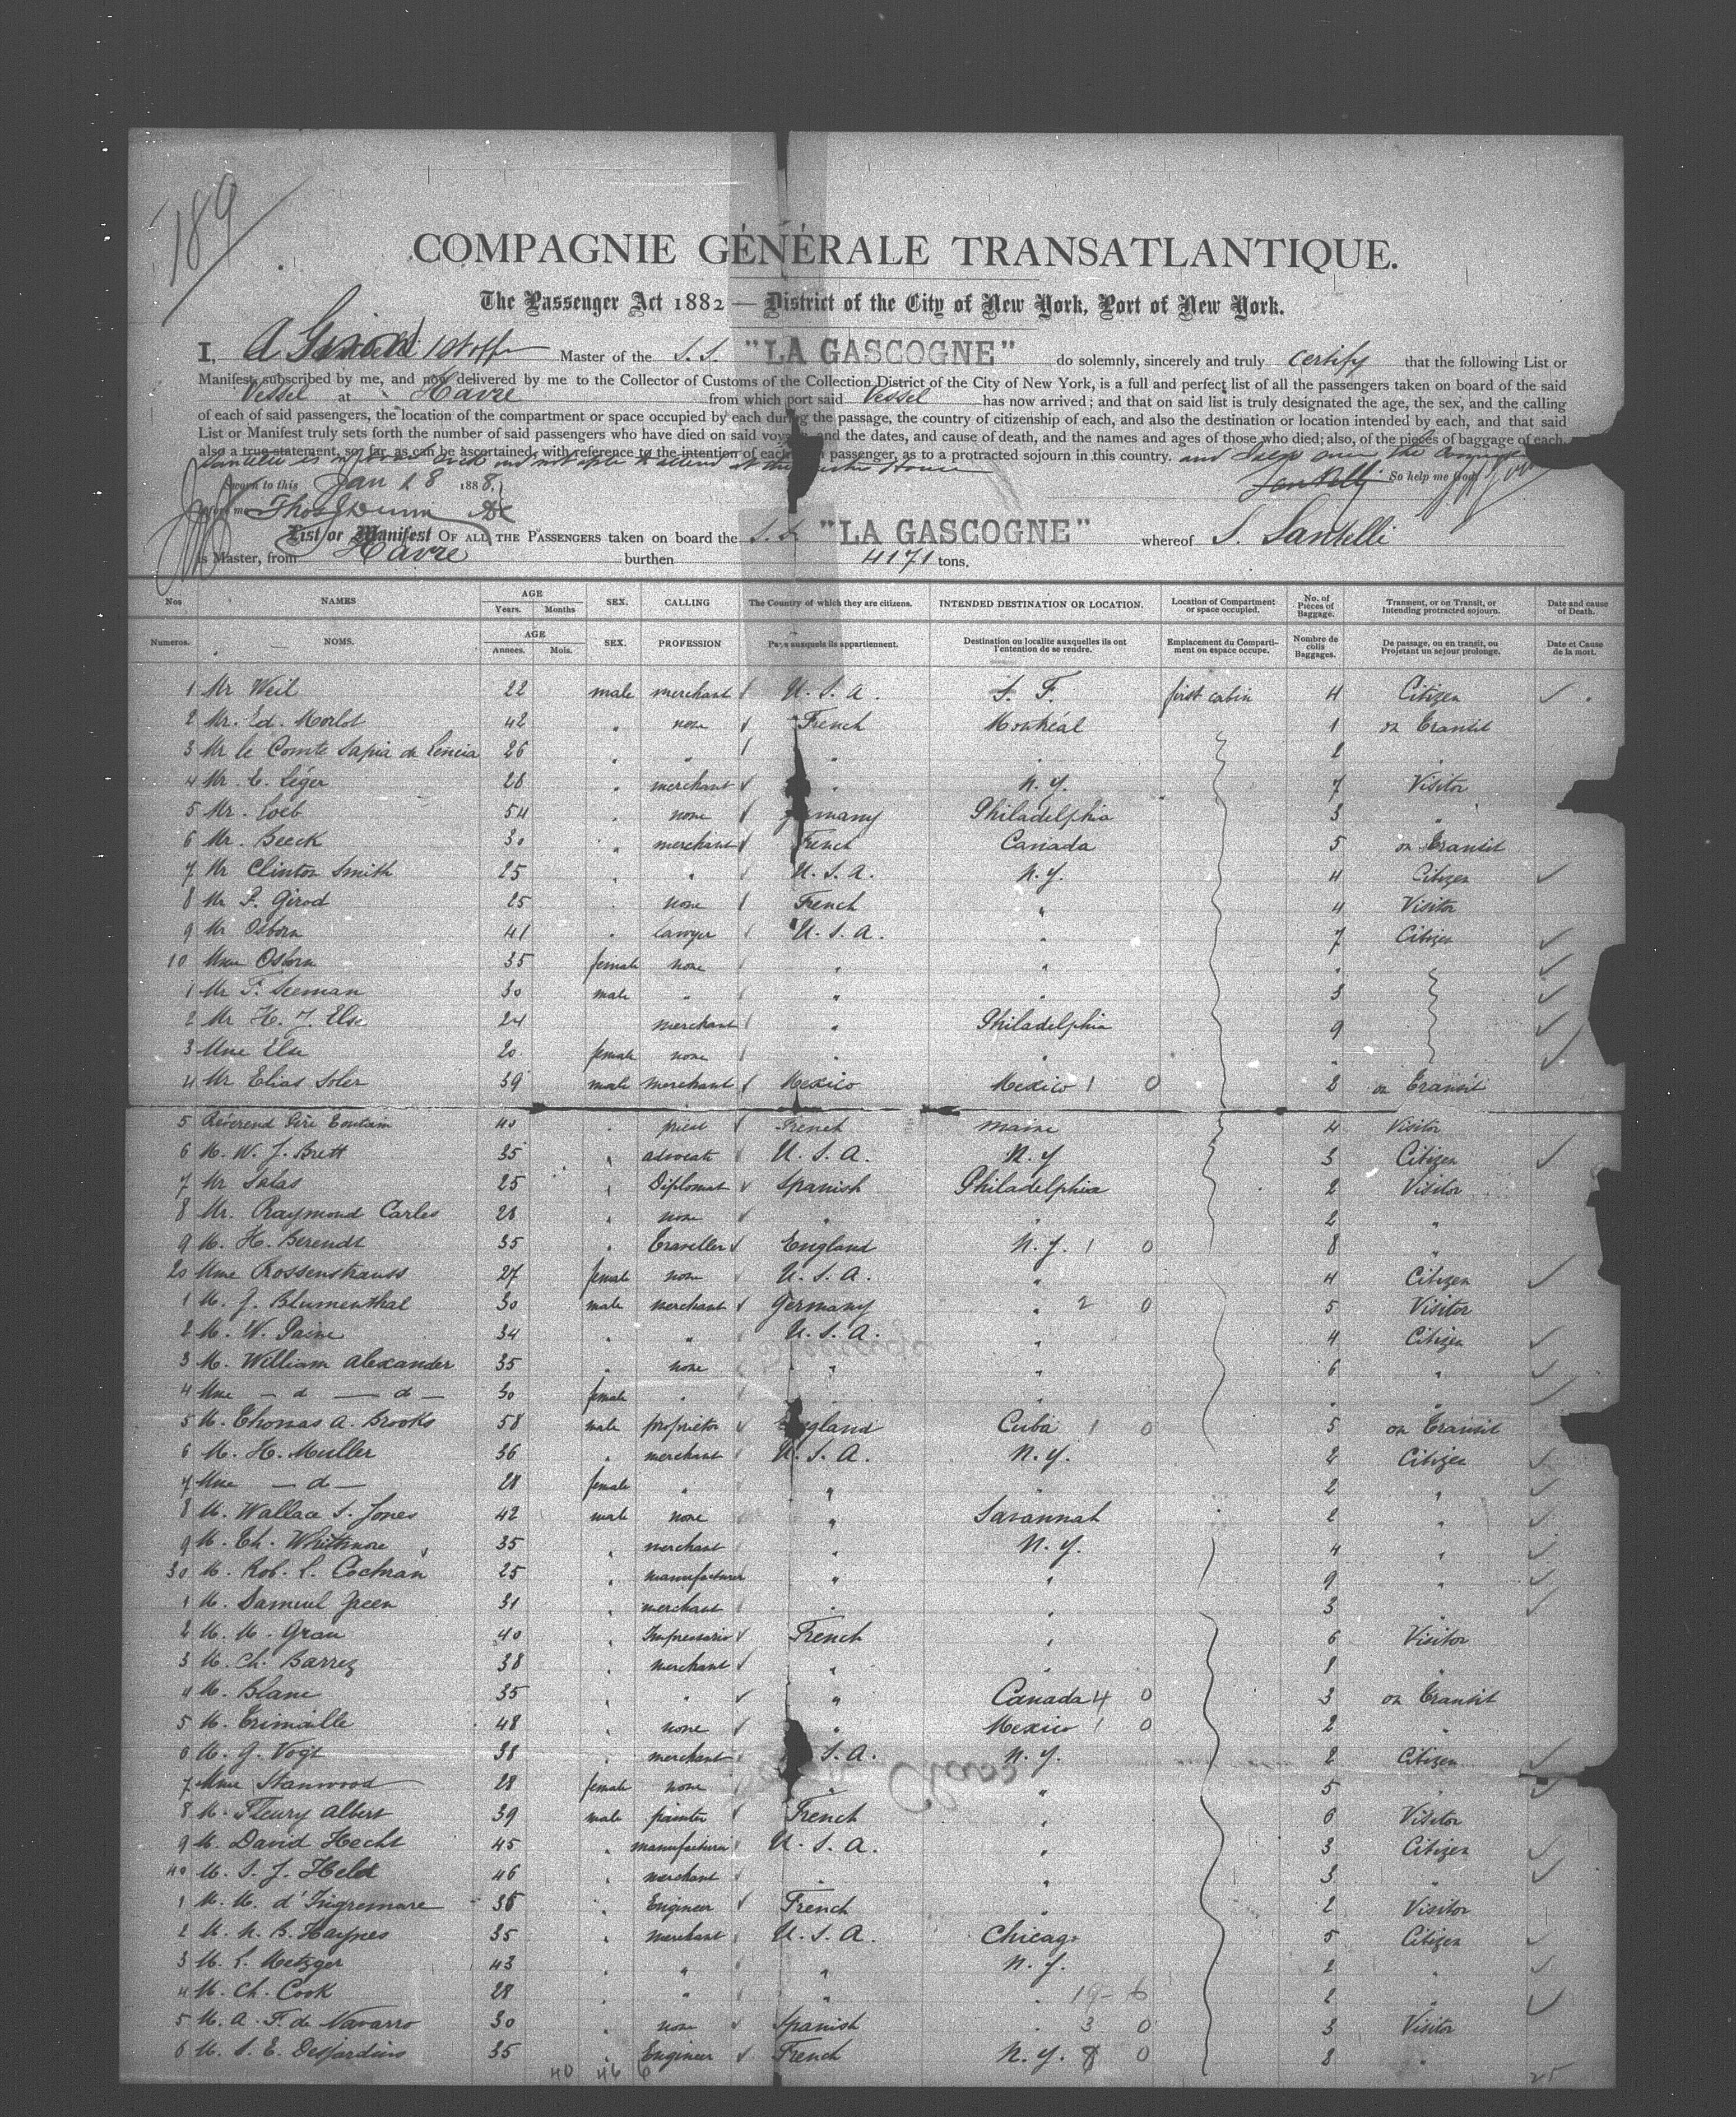 189
COMPAGNIE GÉNÉRALE TRANSATLANTIQUE.
The Passenger Act 1882 — District of the City of New York, Port of New York.
I, A Master of the S.S. "LA GASCOGNE" do solemnly, sincerely and truly certify that the following List or
Manifest, subscribed by me, and now delivered by me to the Collector of Customs of the Collection District of the City of New York, is a full and perfect list of all the passengers taken on board of the said
Vessel at Havre from which port said Vessel has now arrived; and that on said list is truly designated the age, the sex, and the calling
of each of said passengers, the location of the compartment or space occupied by each during the passage, the country of citizenship of each, and also the destination or location intended by each, and that said
List or Manifest truly sets forth the number of said passengers who have died on said voyage and the dates, and cause of death, and the names and ages of those who died; also, of the pieces of baggage of each
also a true statement, so far as can be ascertained, with reference to the intention of each passenger, as to a protracted sojourn in this country.
Santelli is and not able to attend at the Custom House
Sworn to this Jan 28 1888. Santelli So help me God
before me Thos J Dunn
List or Manifest OF ALL THE PASSENGERS taken on board the S.S. "LA GASCOGNE" whereof S. Santelli
is Master, from Havre burthen 4171 tons.
Nos NAMES AGE Years. Months SEX. CALLING The Country of which they are citizens. INTENDED DESTINATION OR LOCATION. Location of Compartment or space occupied. No. of Pieces of Baggage. Transient, or on Transit, or Intending protracted sojourn. Date and cause of Death.
Numeros. NOMS. AGE Annees. Mois. SEX. PROFESSION Pays auxquels ils appartiennent. Destination ou localite auxquelles ils ont l'entention de se rendre. Emplacement du Compartiment ou espace occupe. Nombre de colis Baggages. De passage, ou en transit, ou Projetant un sejour prolonge. Date et Cause de la mort.
1 Mr Weil 22 male merchant U. S. A. S. F. first cabin 4 Citizen
2 Mr. Ed. Morlot 42 " none French Montréal 1 on Transit
3 Mr le Comte Sapia de 26 " " " 2 "
4 Mr. E. Léger 28 " merchant " N. Y. 7 Visitor
5 Mr. Loeb 54 " none Germany Philadelphia 3 "
6 Mr. Beeck 30 " merchant French Canada 5 on Transit
7 Mr Clinton Smith 25 " " U. S. A. N. Y. 4 Citizen
8 Mr P. Girod 25 " none French " 4 Visitor
9 Mr Osborn 41 " lawyer U. S. A. " 7 Citizen
10 Mme Osborn 35 female none " " "
1 Mr F. Seeman 30 male " " " 3
2 Mr H. J. Else 24 merchant " Philadelphia 9
3 Mme Else 20 female none " " "
4 Mr Elias Soler 39 male merchant Mexico Mexico 1 0 2 on Transit
5 Révérend Père 40 " priest French Maine 4 Visitor
6 M. W. J. Brett 35 " advocate U. S. A. N. Y 3 Citizen
7 Mr Salas 25 " Diplomat Spanish Philadelphia 2 Visitor
8 Mr. Raymond Carles 28 " none " " 2 "
9 M. H. Berendt 35 " Traveller England N. Y. 1 0 8 "
20 Mme Rossenstrauss 27 female none U. S. A. " 4 Citizen
1 M. J. Blumenthal 30 male merchant Germany " 2 0 5 Visitor
2 M. W. Paine 34 " " U. S. A. " 4 Citizen
3 M. William Alexander 35 " none " " 6 "
4 Mme — d — d — 30 female " " " "
5 M. Thomas A. Brooks 58 male proprietor England Cuba 1 0 5 on Transit
6 M. H. Muller 36 " merchant U. S. A. N. Y. 2 Citizen
7 Mme — d — 28 female " " " 2 "
8 M. Wallace S. Jones 42 male none " Savannah 2 "
9 M. Ch. Whittmore 35 " merchant " N. Y. 4 "
30 M. Rob. L. Cochran 25 " manufacturer " " 9 "
1 M. Samuel Green 31 " merchant " " 3
2 M. M. Grau 40 " Impressario French " 6 Visitor
3 M. Ch. Barrez 38 " merchant " " 8 "
4 M. Blanc 35 " " " Canada 4 0 3 on Transit
5 M. Trimaille 48 " none " Mexico 1 0 2 "
6 M. G. Vogt 38 " merchant U. S. A. N. Y. 2 Citizen
7 Mme Stanwood 28 female none " " 5 "
8 M. Fleury Albert 39 male painter French " 6 Visitor
9 M. David Hecht 45 " manufacturer U. S. A. " 3 Citizen
40 M. S. J. Held 46 " merchant " " 3 "
1 M. M. d'Ingremare 36 " Engineer French " 2 Visitor
2 M. N. B. Haynes 35 " merchant U. S. A. Chicago 5 Citizen
3 M. L. Metzger 43 " " " N. Y. 2 "
4 M. Ch. Cook 28 " " " " 19-6 2 "
5 M. A. F. de Navarro 30 " none Spanish " 3 0 3 Visitor
6 M. S. E. Desjardins 35 " Engineer French N. Y. 8 0 8 "
40 46 6 25